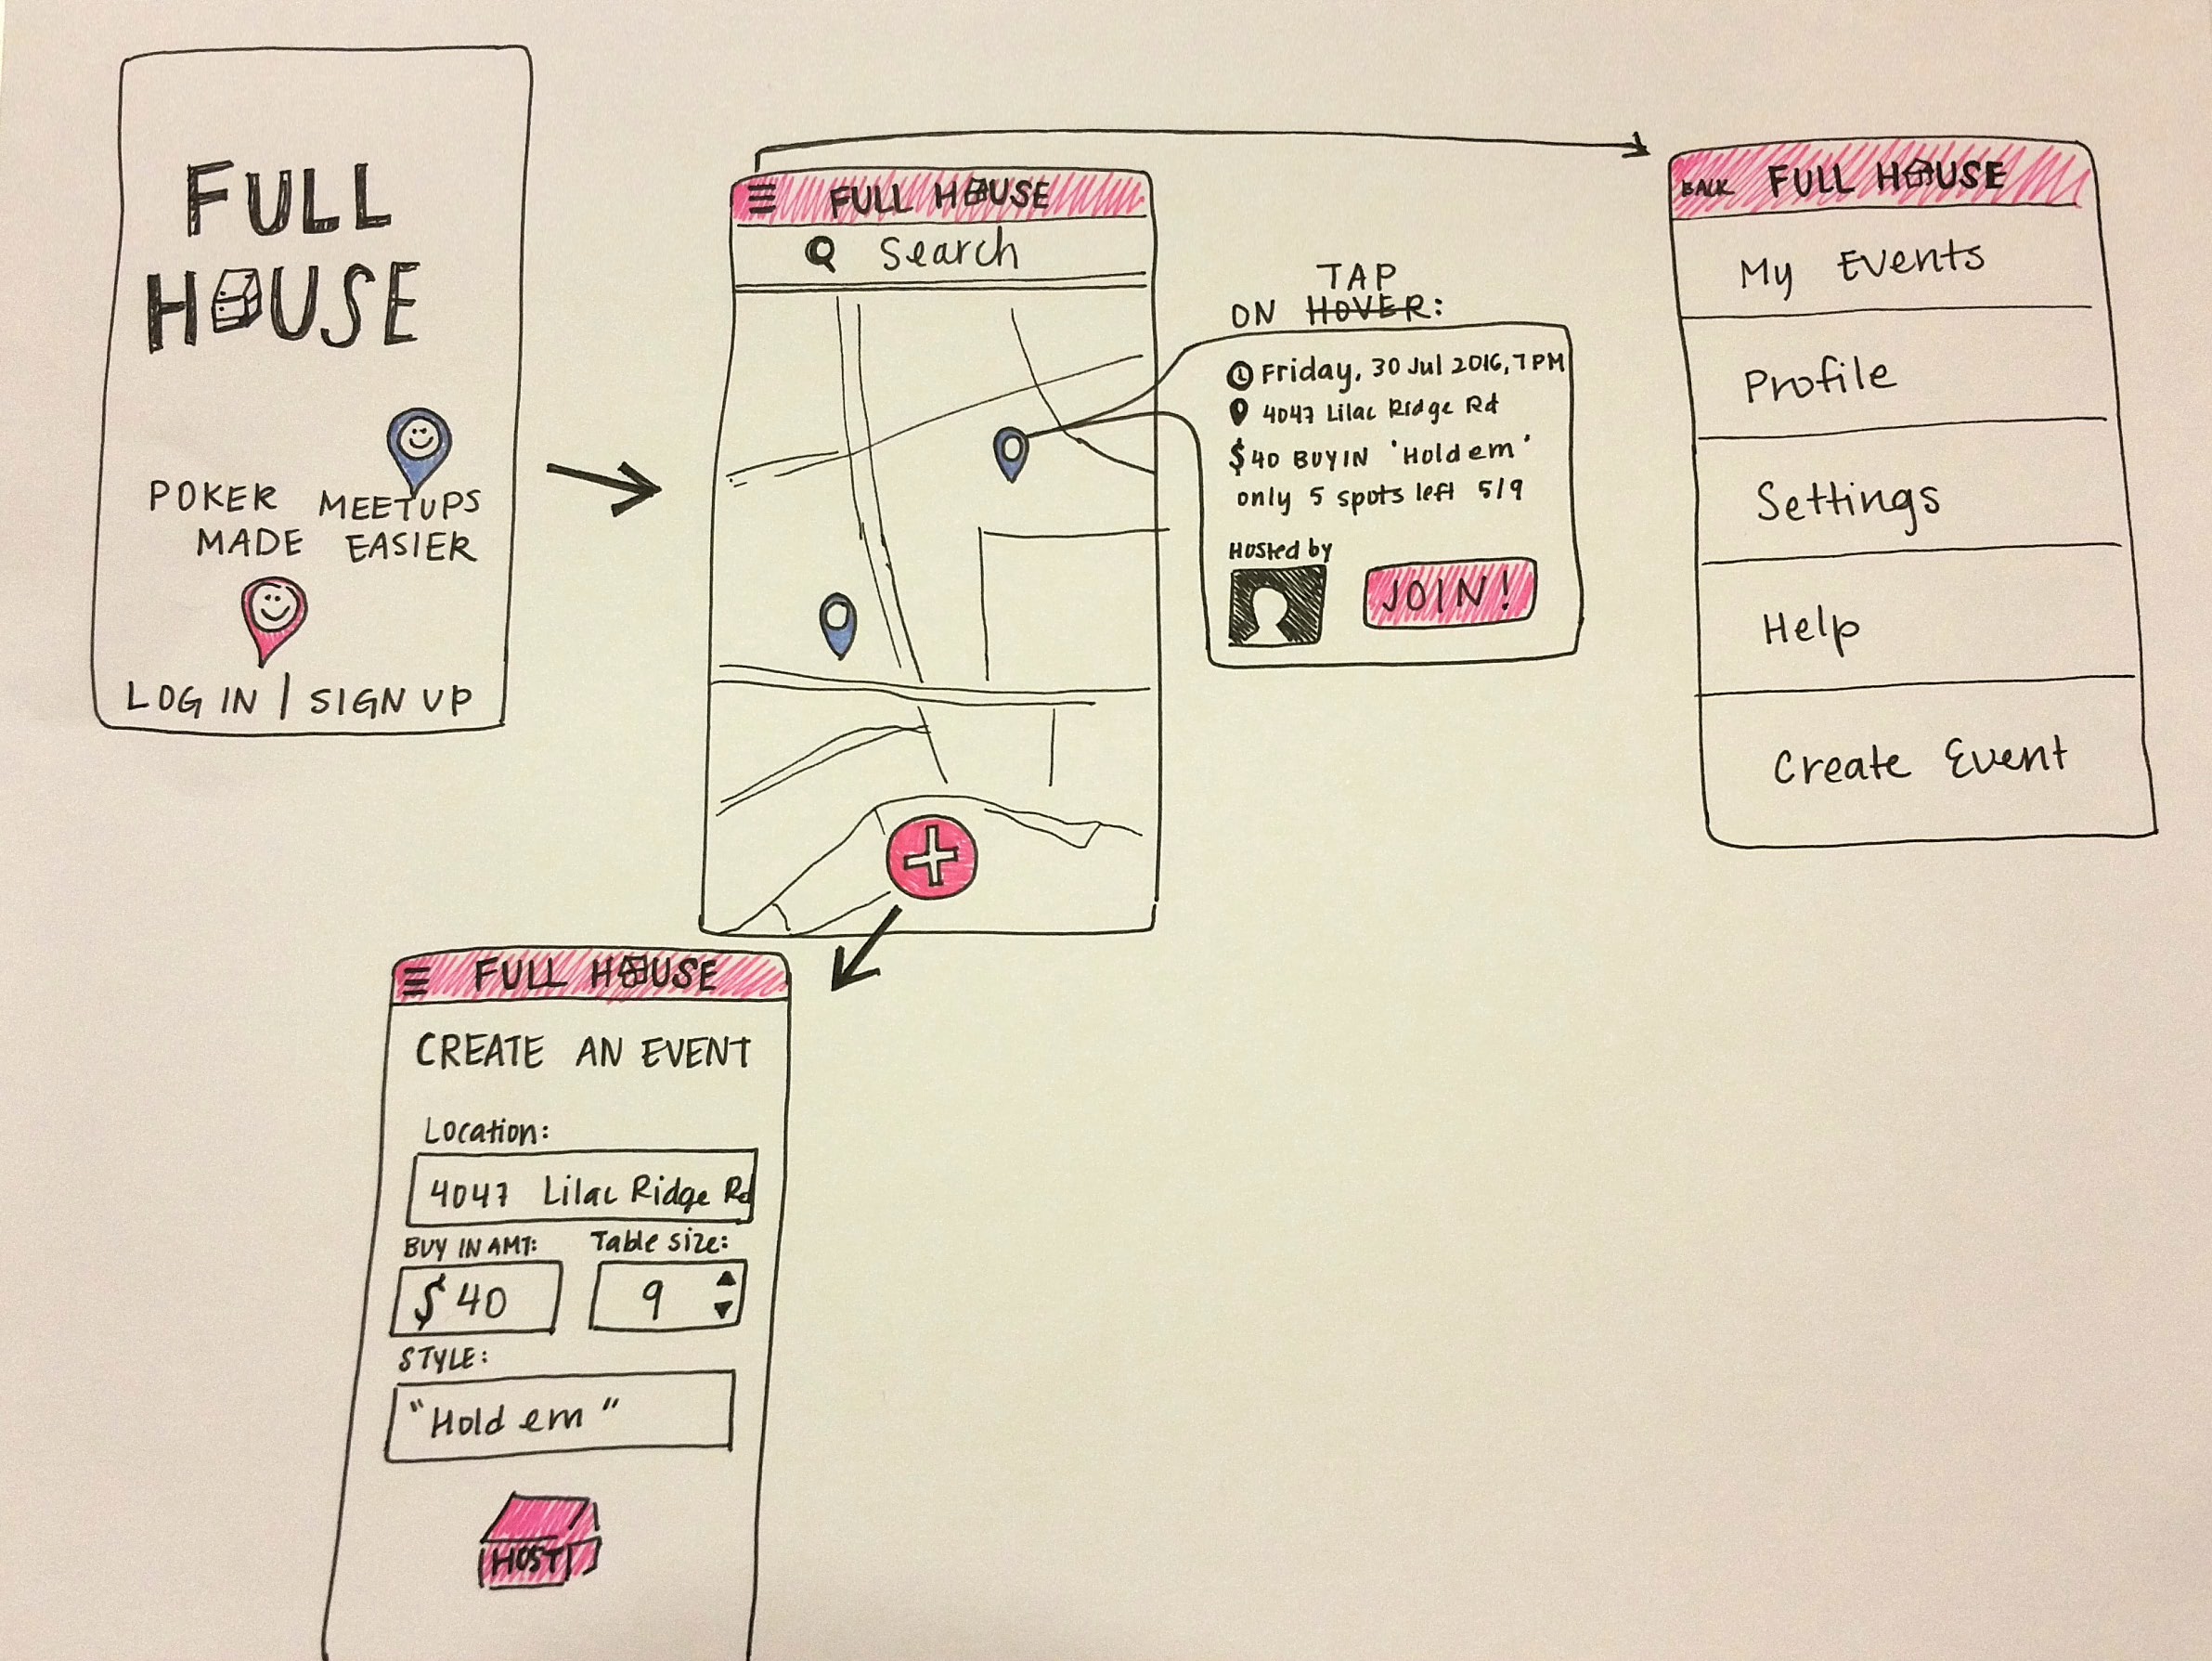 FULL
HOUSE
POKER MEETUPS
MADE EASIER
LOG IN | SIGN UP
FULL HOUSE
Search
TAP
ON HOVER:
Friday, 30 Jul 2016, 7PM
4047 Lilac Ridge Rd
$40 BUY IN 'Hold em'
only 5 spots left 5/9
Hosted by
JOIN!
BACK FULL HOUSE
My Events
Profile
Settings
Help
Create Event
FULL HOUSE
CREATE AN EVENT
Location:
4047 Lilac Ridge Rd
BUY IN AMT: Table size:
$40 9
STYLE:
"Hold em"
HOST